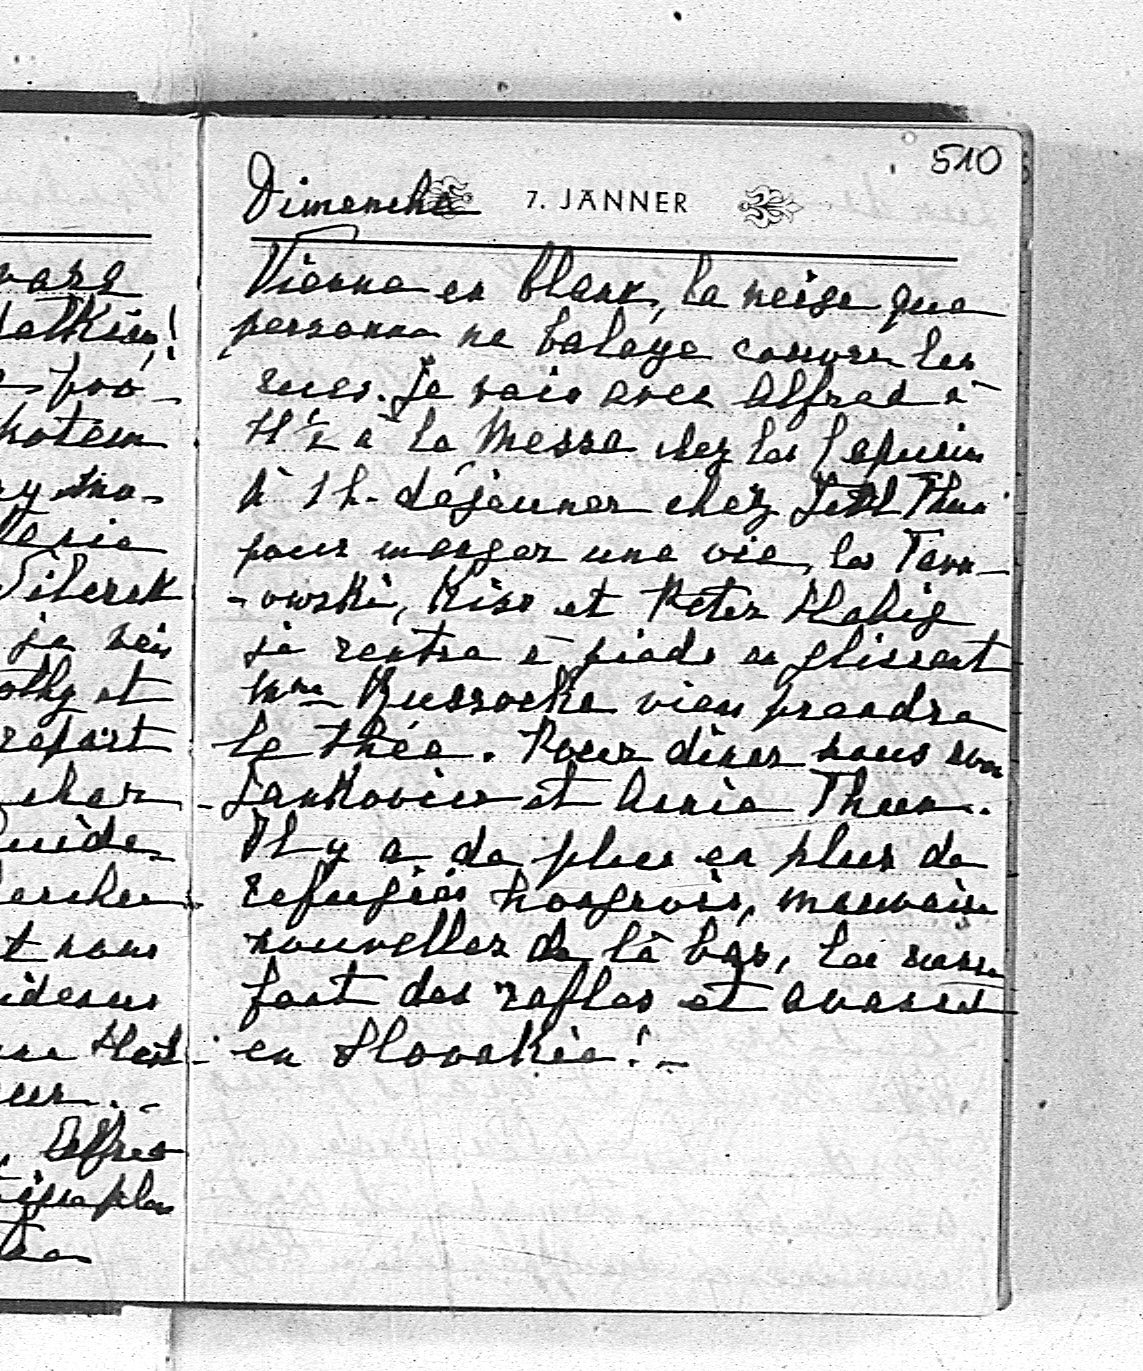 510
Dimanche 7. JÄNNER
Vienne en blanc, la neige que
personne ne balaye couvre les
rues. Je vais avec Alfred à
11½ à la Messe chez les Capucins
à 1 h. déjeuner chez Thun
pour manger une oie, les Tarn-
-owski, Kiss et Peter Habig
je rentre à pieds en glissant
Mme vien prendre
le thée. Pour diner nous avon
Jankovics et Thun.
Il y a de plus en plus de
refugiés hongrois, mauvais
nouvelles de là bas, les russe
font des rafles et avances
en Slovakie! -
vars
!
foo-
hotem
je vois
et
repart
cherche
t nous
-idesus
eur. -
Alfred
plus